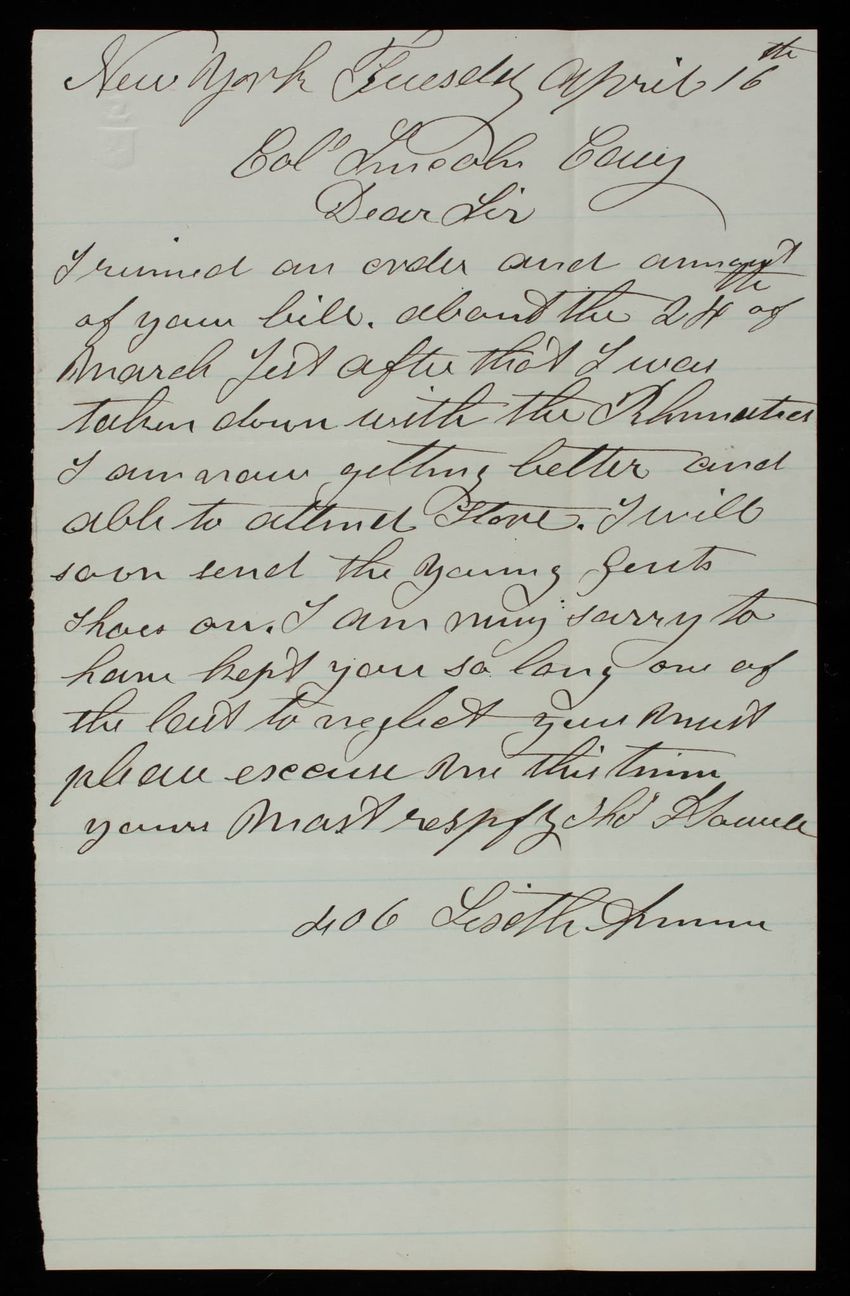 New York Tuesday April 16th
Colo Lincoln Casey
Dear Sir
I reived an order and amount
of your bill. about the 24th of
March Jest after that I was
taken down with the Rhumaties
I am now getting better and
able to attend Store. I will
soon send the young gents
shoes on. I am very sorry to
have kept you so long one of
the last to neglect you must
please excuse me this time
yours Most respfy Tho
406 Sixth Avenue